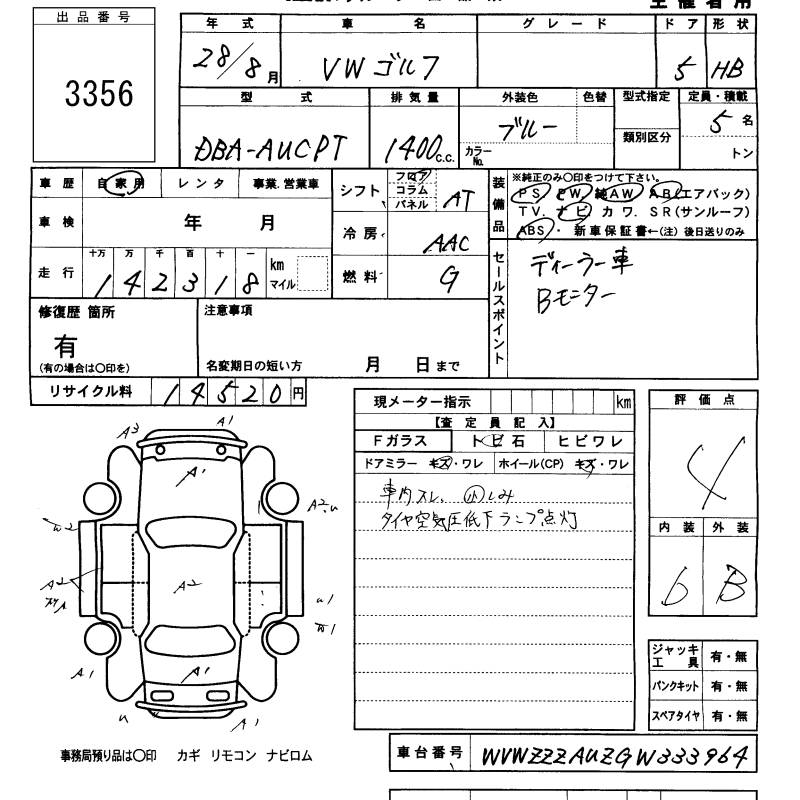 主催者用
出品番号
3356
年式 車名 グレード ドア 形状
28/8月 VW ゴルフ 5 HB
型式 排気量 外装色 色替 型式指定 定員・積載
DBA-AUCPT 1400 c.c. ブルー カラーNo. 類別区分 5名
トン
車歴 自家用 レンタ 事業.営業車
シフト フロア コラム パネル AT
車検 年 月
冷房 AAC
走行 十万 万 千 百 十 一
142318 km マイル
燃料 G
装備品 ※純正のみ○印をつけて下さい。
PS PW 純AW AB(エアバック)
TV. ナビ カワ. SR(サンルーフ)
ABS ・ 新車保証書←(注) 後日送りのみ
セールスポイント
ディーラー車
Bモニター
修復歴 箇所
有
(有の場合は○印を)
注意事項
名変期日の短い方 月 日まで
リサイクル料 14520円
現メーター指示 km
【査定員記入】
Fガラス トビ石 ヒビワレ
ドアミラー キズ・ワレ ホイール(CP) キズ・ワレ
車内スレ、小しみ
タイヤ空気圧低下ランプ点灯
評価点
4
内装 外装
b B
A3 A1
A1
A2.u
W2
A2
A2
u1
W1
A1 A1
u A1
ジャッキ工具 有・無
パンクキット 有・無
スペアタイヤ 有・無
事務局預り品は○印 カギ リモコン ナビロム
車台番号 WVWZZZAUZGW333964